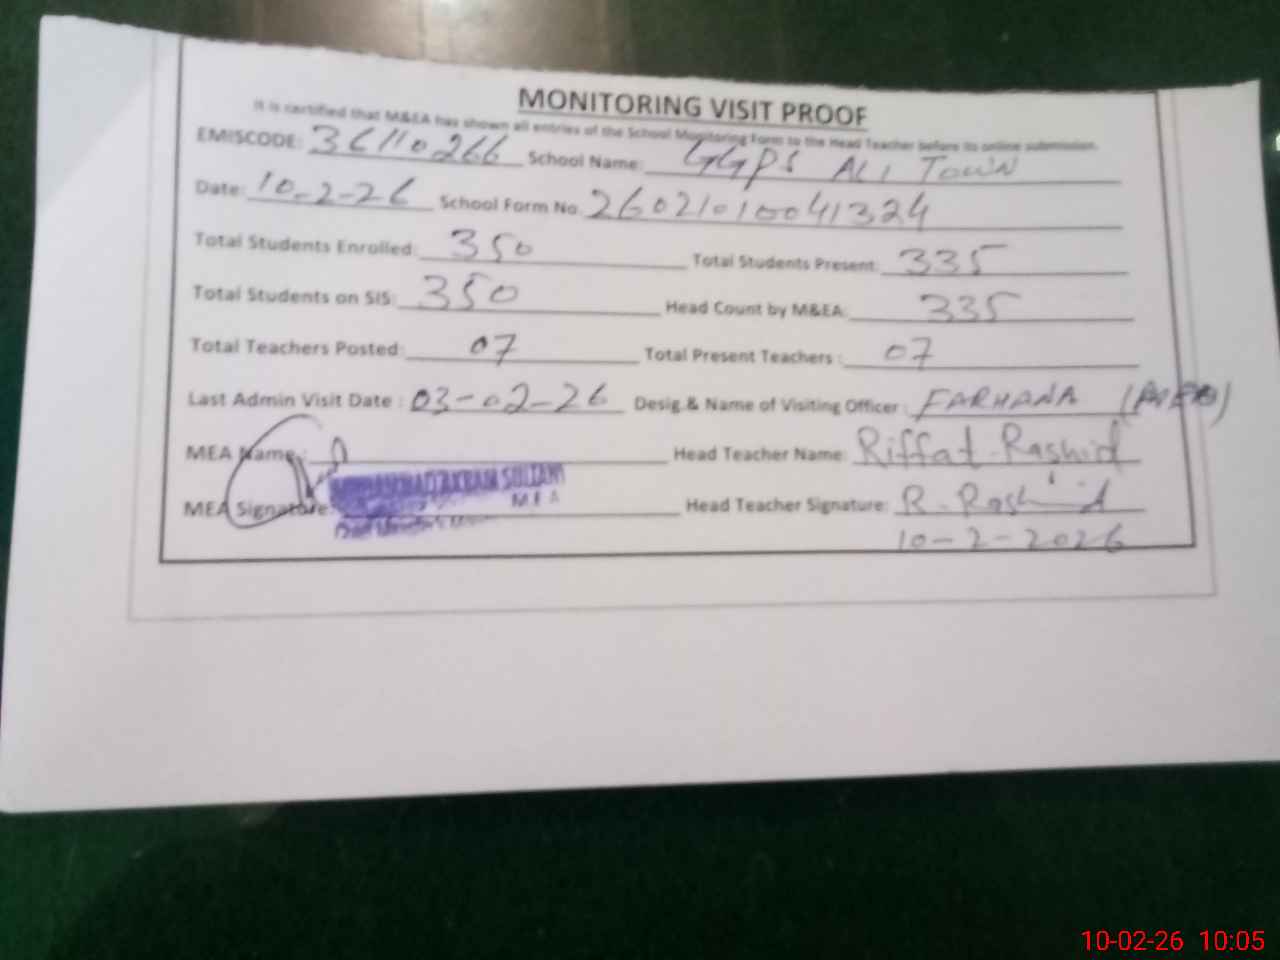 MONITORING VISIT PROOF
It is certified that M&EA has shown all entries of the School Monitoring Form to the Head Teacher before its online submission.
EMISCODE: 36110266 School Name: GGPS ALI TOWN
Date: 10-2-26 School Form No. 26021010041324
Total Students Enrolled: 350 Total Students Present: 335
Total Students on SIS: 350 Head Count by M&EA: 335
Total Teachers Posted: 07 Total Present Teachers : 07
Last Admin Visit Date : 03-02-26 Desig.& Name of Visiting Officer : FARHANA
MEA Name: Head Teacher Name: Riffat Rashid
SULTAN
MEA
MEA Signature: Head Teacher Signature: R. Rashid
10-2-2026
10-02-26 10:05